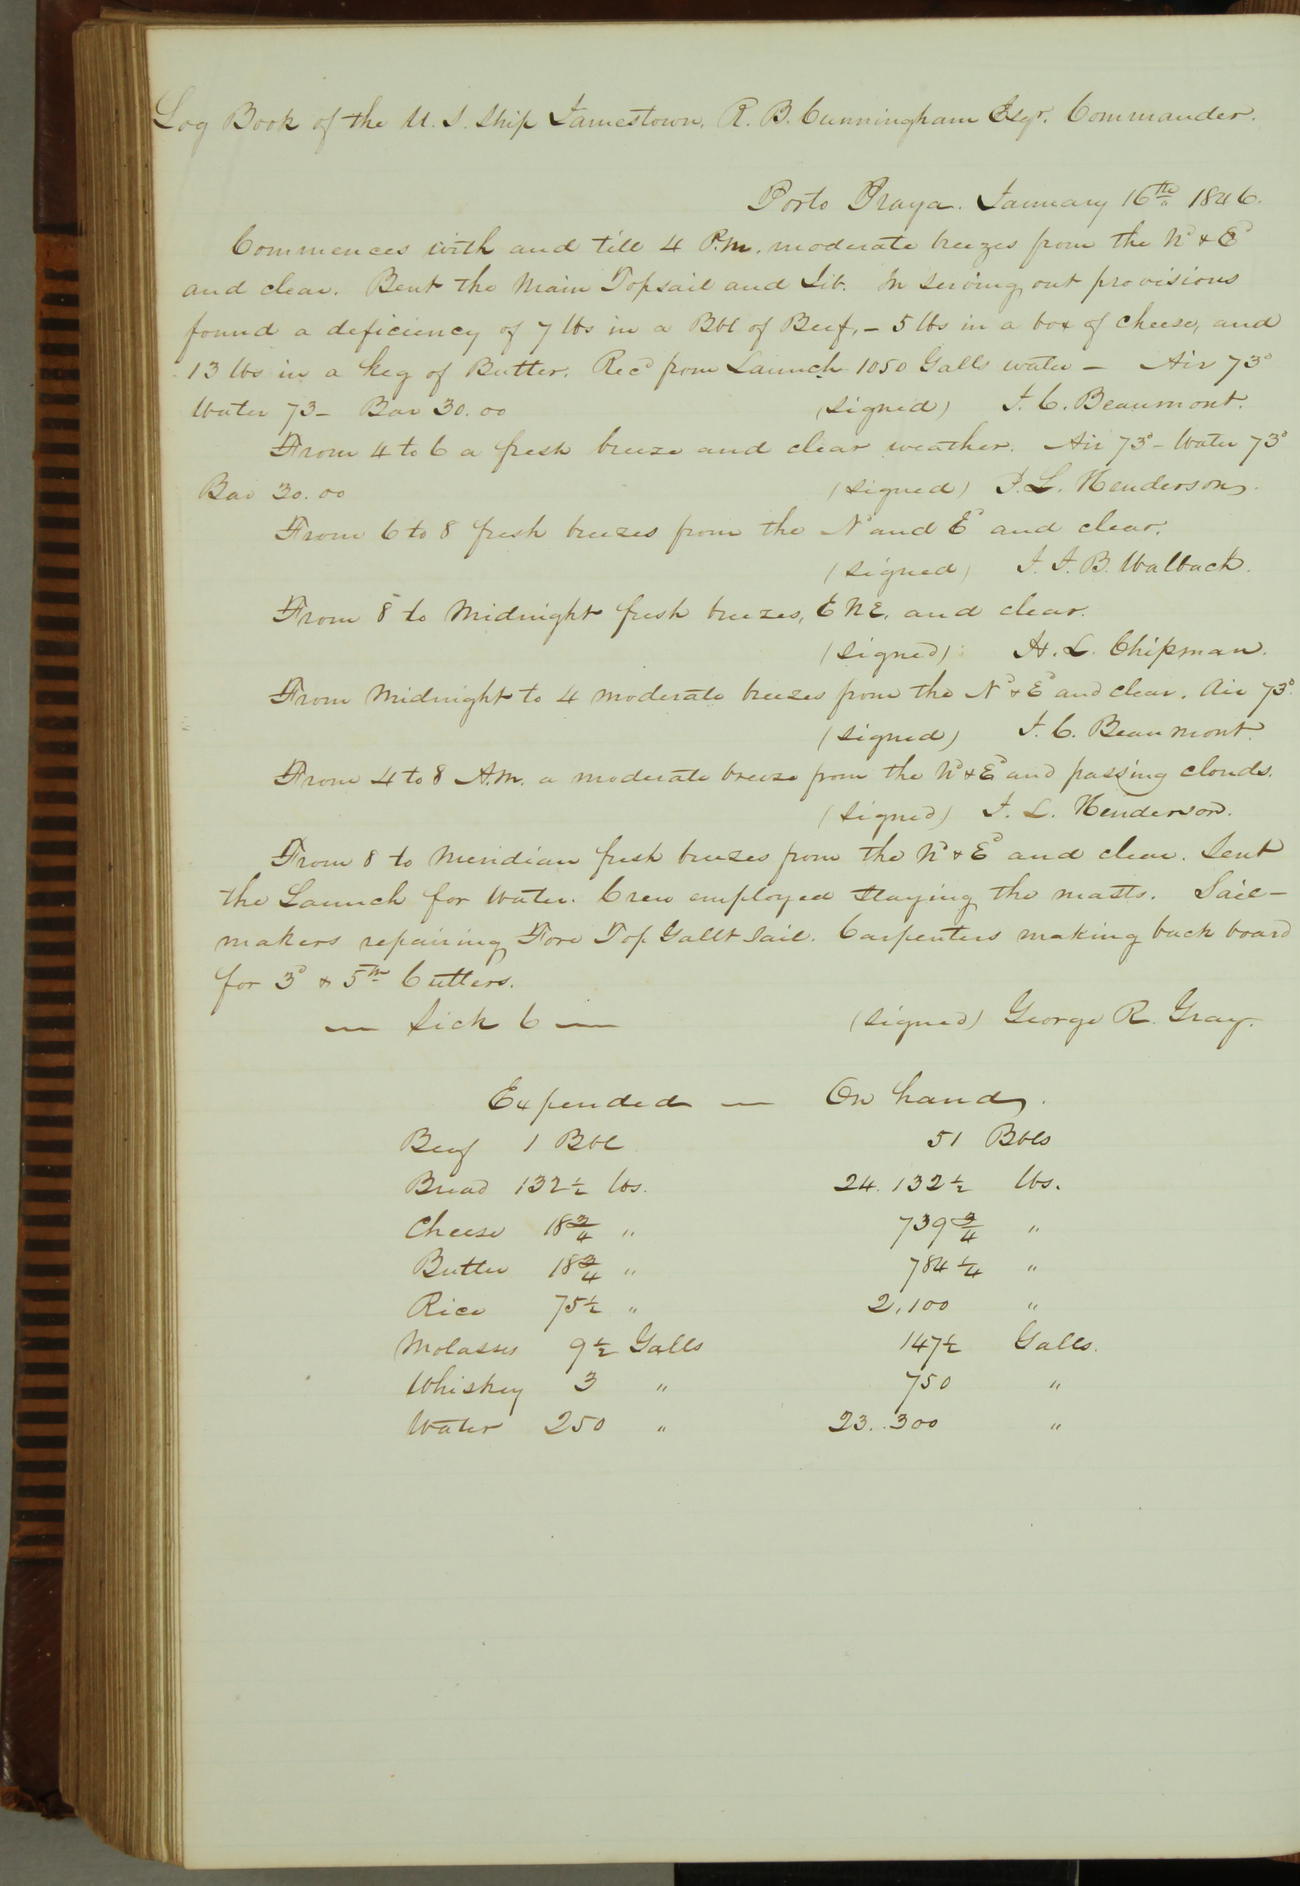 Log Book of the U. S. Ship Jamestown, R. B. Cunningham Esqr. Commander.
Porto Praya. January 16th 1846.
Commences with and till 4 P.M. moderate breezes from the Nd & Ed
and clear. Bent the Main Topsail and Jib. In serving out provisions
found a deficiency of 7 lbs in a Bbl of Beef, – 5 lbs in a box of cheese, and
13 lbs in a keg of Butter. Recd from Launch 1050 Galls water – Air 73°
Water 73 – Bar 30.00 (signed) J. C. Beaumont.
From 4 to 6 a fresh breeze and clear weather. Air 73° – Water 73°
Bar 30.00 (signed) J. L. Henderson.
From 6 to 8 fresh breezes from the Nd and Ed and clear.
(signed) J. J. B. Walback.
From 8 to Midnight fresh breezes, ENE, and clear.
(signed) H. L. Chipman.
From Midnight to 4 moderate breezes from the Nd & Ed and clear. Air 73°.
(signed) J. C. Beaumont.
From 4 to 8 A.M. a moderate breeze from the Nd & Ed and passing clouds.
(signed) J. L. Henderson.
From 8 to Meridian fresh breezes from the Nd & Ed and clear. Sent
the Launch for Water. Crew employed staying the masts. Sail–
makers repairing Fore Top Gallt Sail. Carpenters making back board
for 3d & 5th Cutters.
— Sick 6 — (signed) George R. Gray.
Expended — On hand.
Beef 1 Bbl 51 Bbls
Bread 132½ lbs. 24.132½ lbs.
Cheese 18¾ " 739¾ "
Butter 18¾ " 784¼ "
Rice 75½ " 2,100 "
Molasses 9½ Galls 147½ Galls.
Whiskey 3 " 750 "
Water 250 " 23.300 "